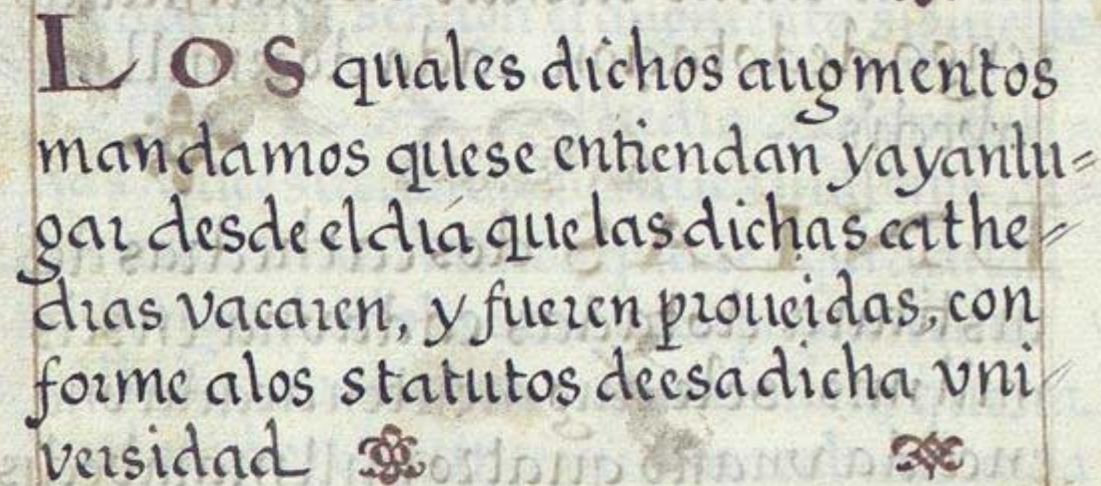 Los quales dichos augmentos
mandamos quese entiendan yayanlu=
gar desde eldiá que las dichas cathe=
dras vacaren, y fueren proueidas, con
forme alos statutos deesadicha vni
versidad